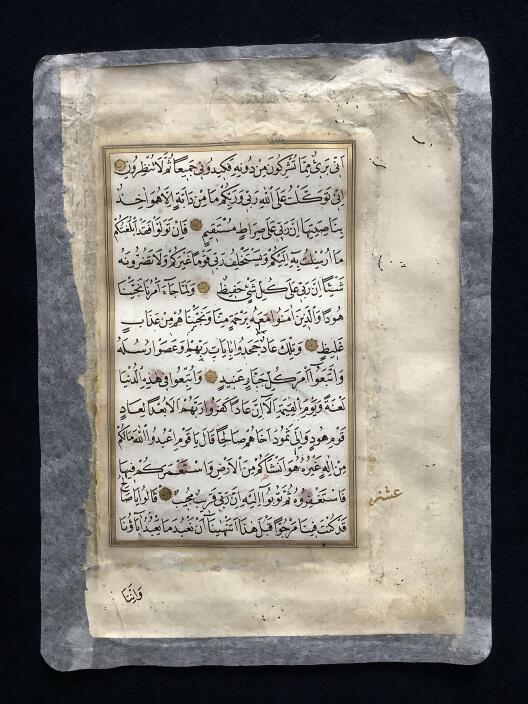 اَنّى بَرىءٌ مِمَّا تُشْرِكُونَ مِنْ دُونِهِ فَكيدُونى جَميعاً ثُمَّ لَا تُنْظِرُونِ
اِنّى تَوَكَّلْتُ عَلَى اللّهِ رَبّى وَرَبِّكُمْ مَا مِنْ دَابَّةٍ اِلَّا هُوَ اخِذٌ
بِنَاصِيَتِهَا اِنَّ رَبّى عَلى صِرَاطٍ مُسْتَقيمٍ فَاِنْ تَوَلَّوْا فَقَدْ اَبْلَغْتُكُمْ
مَا اُرْسِلْتُ بِهِ اِلَيْكُمْ وَيَسْتَخْلِفُ رَبّى قَوْمًا غَيْرَكُمْ وَلَا تَضُرُّونَهُ
شَيْئًا اِنَّ رَبّى عَلى كُلِّ شَىْءٍ حَفيظٌ وَلَمَّا جَاءَ اَمْرُنَا نَجَّيْنَا
هُودًا وَالَّذينَ امَنُوا مَعَهُ بِرَحْمَةٍ مِنَّا وَنَجَّيْنَاهُمْ مِنْ عَذَابٍ
غَليظٍ وَتِلْكَ عَادٌ جَحَدُوا بِايَاتِ رَبِّهِمْ وَعَصَوْا رُسُلَهُ
وَاتَّبَعُوا اَمْرَ كُلِّ جَبَّارٍ عَنيدٍ وَاُتْبِعُوا فى هذِهِ الدُّنْيَا
لَعْنَةً وَيَوْمَ الْقِيمَةِ اَلَا اِنَّ عَادًا كَفَرُوا رَبَّهُمْ اَلَا بُعْدًا لِعَادٍ
قَوْمِ هُودٍ وَاِلى ثَمُودَ اَخَاهُمْ صَالِحًا قَالَ يَا قَوْمِ اعْبُدُوا اللّهَ مَا لَكُمْ
مِنْ اِلهٍ غَيْرُهُ هُوَ اَنْشَاَكُمْ مِنَ الْاَرْضِ وَاسْتَعْمَرَكُمْ فيهَا
فَاسْتَغْفِرُوهُ ثُمَّ تُوبُوا اِلَيْهِ اِنَّ رَبّى قَريبٌ مُجيبٌ قَالُوا يَا صَالِحُ
قَدْ كُنْتَ فينَا مَرْجُوًّا قَبْلَ هذَا اَتَنْهينَا اَنْ نَعْبُدَ مَا يَعْبُدُ ابَاؤُنَا
عشر
وَاِنَّنَا